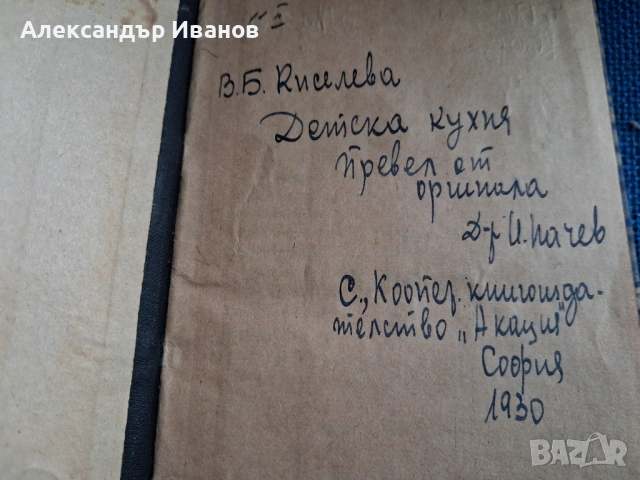 Александър Иванов
"I
В.Б. Киселева
Детска кухня
превел от
оригинала
Д-р И. Начев
С., Коопер. книгоизда-
телство „Акация"
София
1930
BAZAR